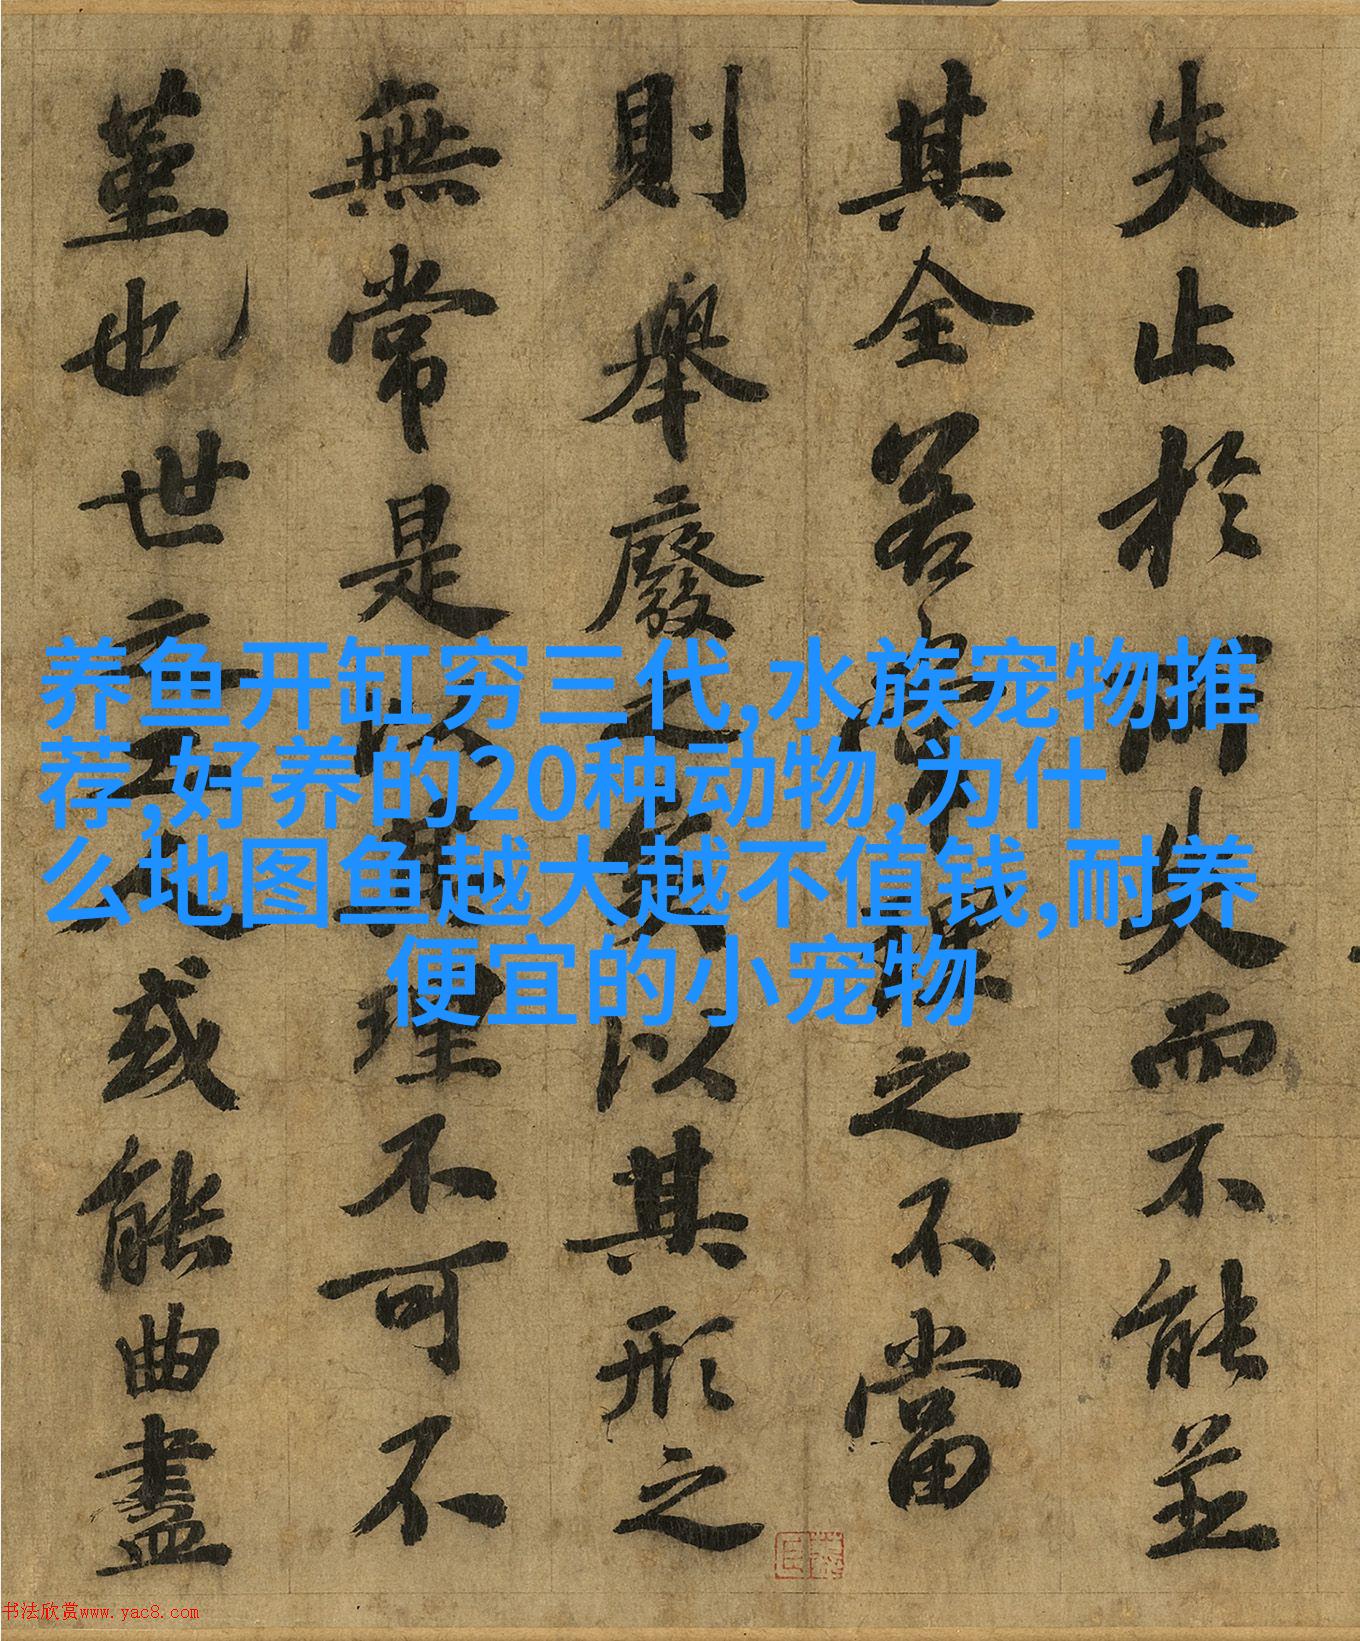 失止於所失而不能並
其全若常理之不當
則舉廢之矣以其形之
無常是以其理不可不
堇也世之工人或能曲盡
养鱼开缸穷三代,水族宠物推
荐,好养的20种动物,为什
么地图鱼越大越不值钱,耐养
便宜的小宠物
书法欣赏www.yac8.com